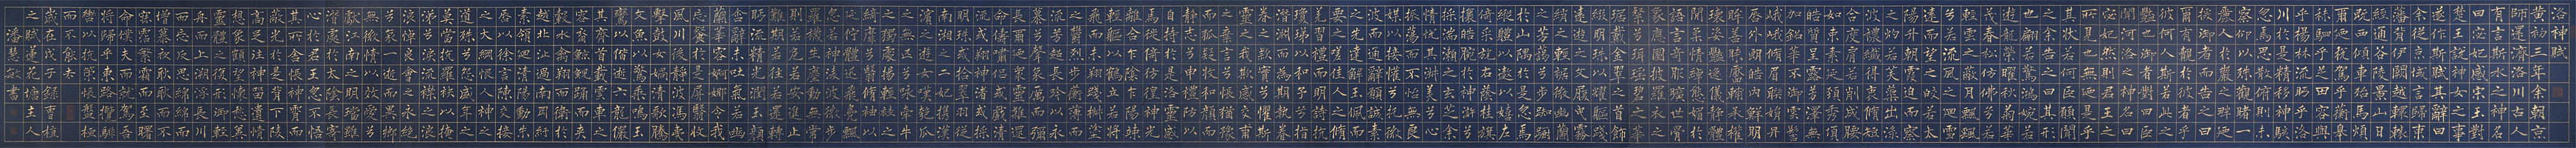 洛神賦
黃初三年余朝京
師還濟洛川古人
有言斯水之神名
曰宓妃感宋玉對
楚王說神女之事
遂作斯賦其辭曰
余從京域言歸東
藩背伊闕越轘轅
經通谷陵景山日
既西傾車殆馬煩
爾迺稅駕乎蘅皋
秣駟乎芝田容與
乎楊林流眄乎洛
川於是精移神駭
忽焉思散俯則未
察仰以殊觀睹一
麗人于巖之畔迺
援御者而告之曰
爾有覿於彼者乎
彼何人斯若此之
豔也御者對曰臣
聞河洛之神名曰
宓妃然則君王之
所見也無迺是乎
其狀若何臣願聞
之余告之曰其形
也翩若驚鴻婉若
遊龍榮曜秋菊華
茂春松髣髴兮若
輕雲之蔽月飄颻
兮若流風之迴雪
遠而望之皎若太
陽升朝霞迫而察
之灼若芙蕖出淥
波穠纖得衷脩短
合度肩若削成腰
如約素延頸秀項
皓質呈露芳澤無
加鉛華不御雲髻
峨峨脩眉聯娟丹
唇外朗皓齒內鮮
眸善睞靨輔承權
瓌姿豔逸儀靜體
閑柔情綽態媚於
語言奇服曠世骨
象應圖披羅衣之
璨兮珥瑤碧之華
琚戴金翠之首飾
綴明珠以耀軀踐
遠遊之文履曳霧
綃之輕裾微幽蘭
之芳藹兮步踟躕
於山隅於是忽焉
縱體以遨以嬉左
倚采旄右蔭桂旗
攘皓腕於神滸兮
採湍瀨之玄芝余
情悅其淑美兮心
振蕩而不怡無良
媒以接懽兮託微
波而通辭願誠素
之先達解玉佩而
要之嗟佳人之信
羌習禮而明詩抗
瓊珶以和予兮指
潛淵而為期執
眷眷之款實兮懼斯
靈之我欺感交甫
之棄言兮悵猶豫
而狐疑收和顏而
靜志兮申禮防以
自持於是洛靈感
焉徙倚彷徨神光
離合乍陰乍陽竦
輕軀以鶴立若將
飛而未翔踐椒塗
之郁烈步蘅薄而
流芳超長吟以永
慕兮聲哀厲而彌
長爾迺眾靈雜遝
命儔嘯侶或戲清
流或翔神渚或採
明珠或拾翠羽從
南湘之二妃攜漢
濱之遊女歎匏瓜
之無匹兮詠牽牛
之獨處揚輕袿之
綺靡兮翳脩袖以
延佇體迅飛鳧飄
忽若神陵波微步
羅襪生塵動無常
則若危若安進止
難期若往若還轉
眄流精光潤玉顏
含辭未吐氣若幽
蘭華容婀娜令我
忘餐於是屏翳收
風川后靜波馮夷
擊鼓女媧清歌騰
文魚以警乘鳴玉
鸞以偕逝六龍儼
其齊首載雲車之
容裔鯨鯢踴而夾
轂水禽翔而為衛於
是越北沚過南岡紆
素領迴清陽動朱
唇以徐言陳交接
之大綱恨人神之
道殊兮怨盛年之
莫當抗羅袂以掩
涕兮淚流襟之浪
浪悼良會之永絕
兮哀一逝而異鄉
無微情以效愛兮
獻江南之明璫雖
潛處於太陰長寄
心於君王忽不悟
其所舍悵神宵而
蔽光於是背下陵
高足往神留遺情
想像顧望懷愁冀
靈體之復形御輕
舟而上溯浮長川
而忘反思綿綿而
增慕夜耿耿而不
寐霑繁霜而至曙
命僕夫而就駕吾
將歸乎東路攬騑
轡以抗策悵盤桓
而不能去
歲在戊子曹植
之賦花錄土
潘慧敏書 主人